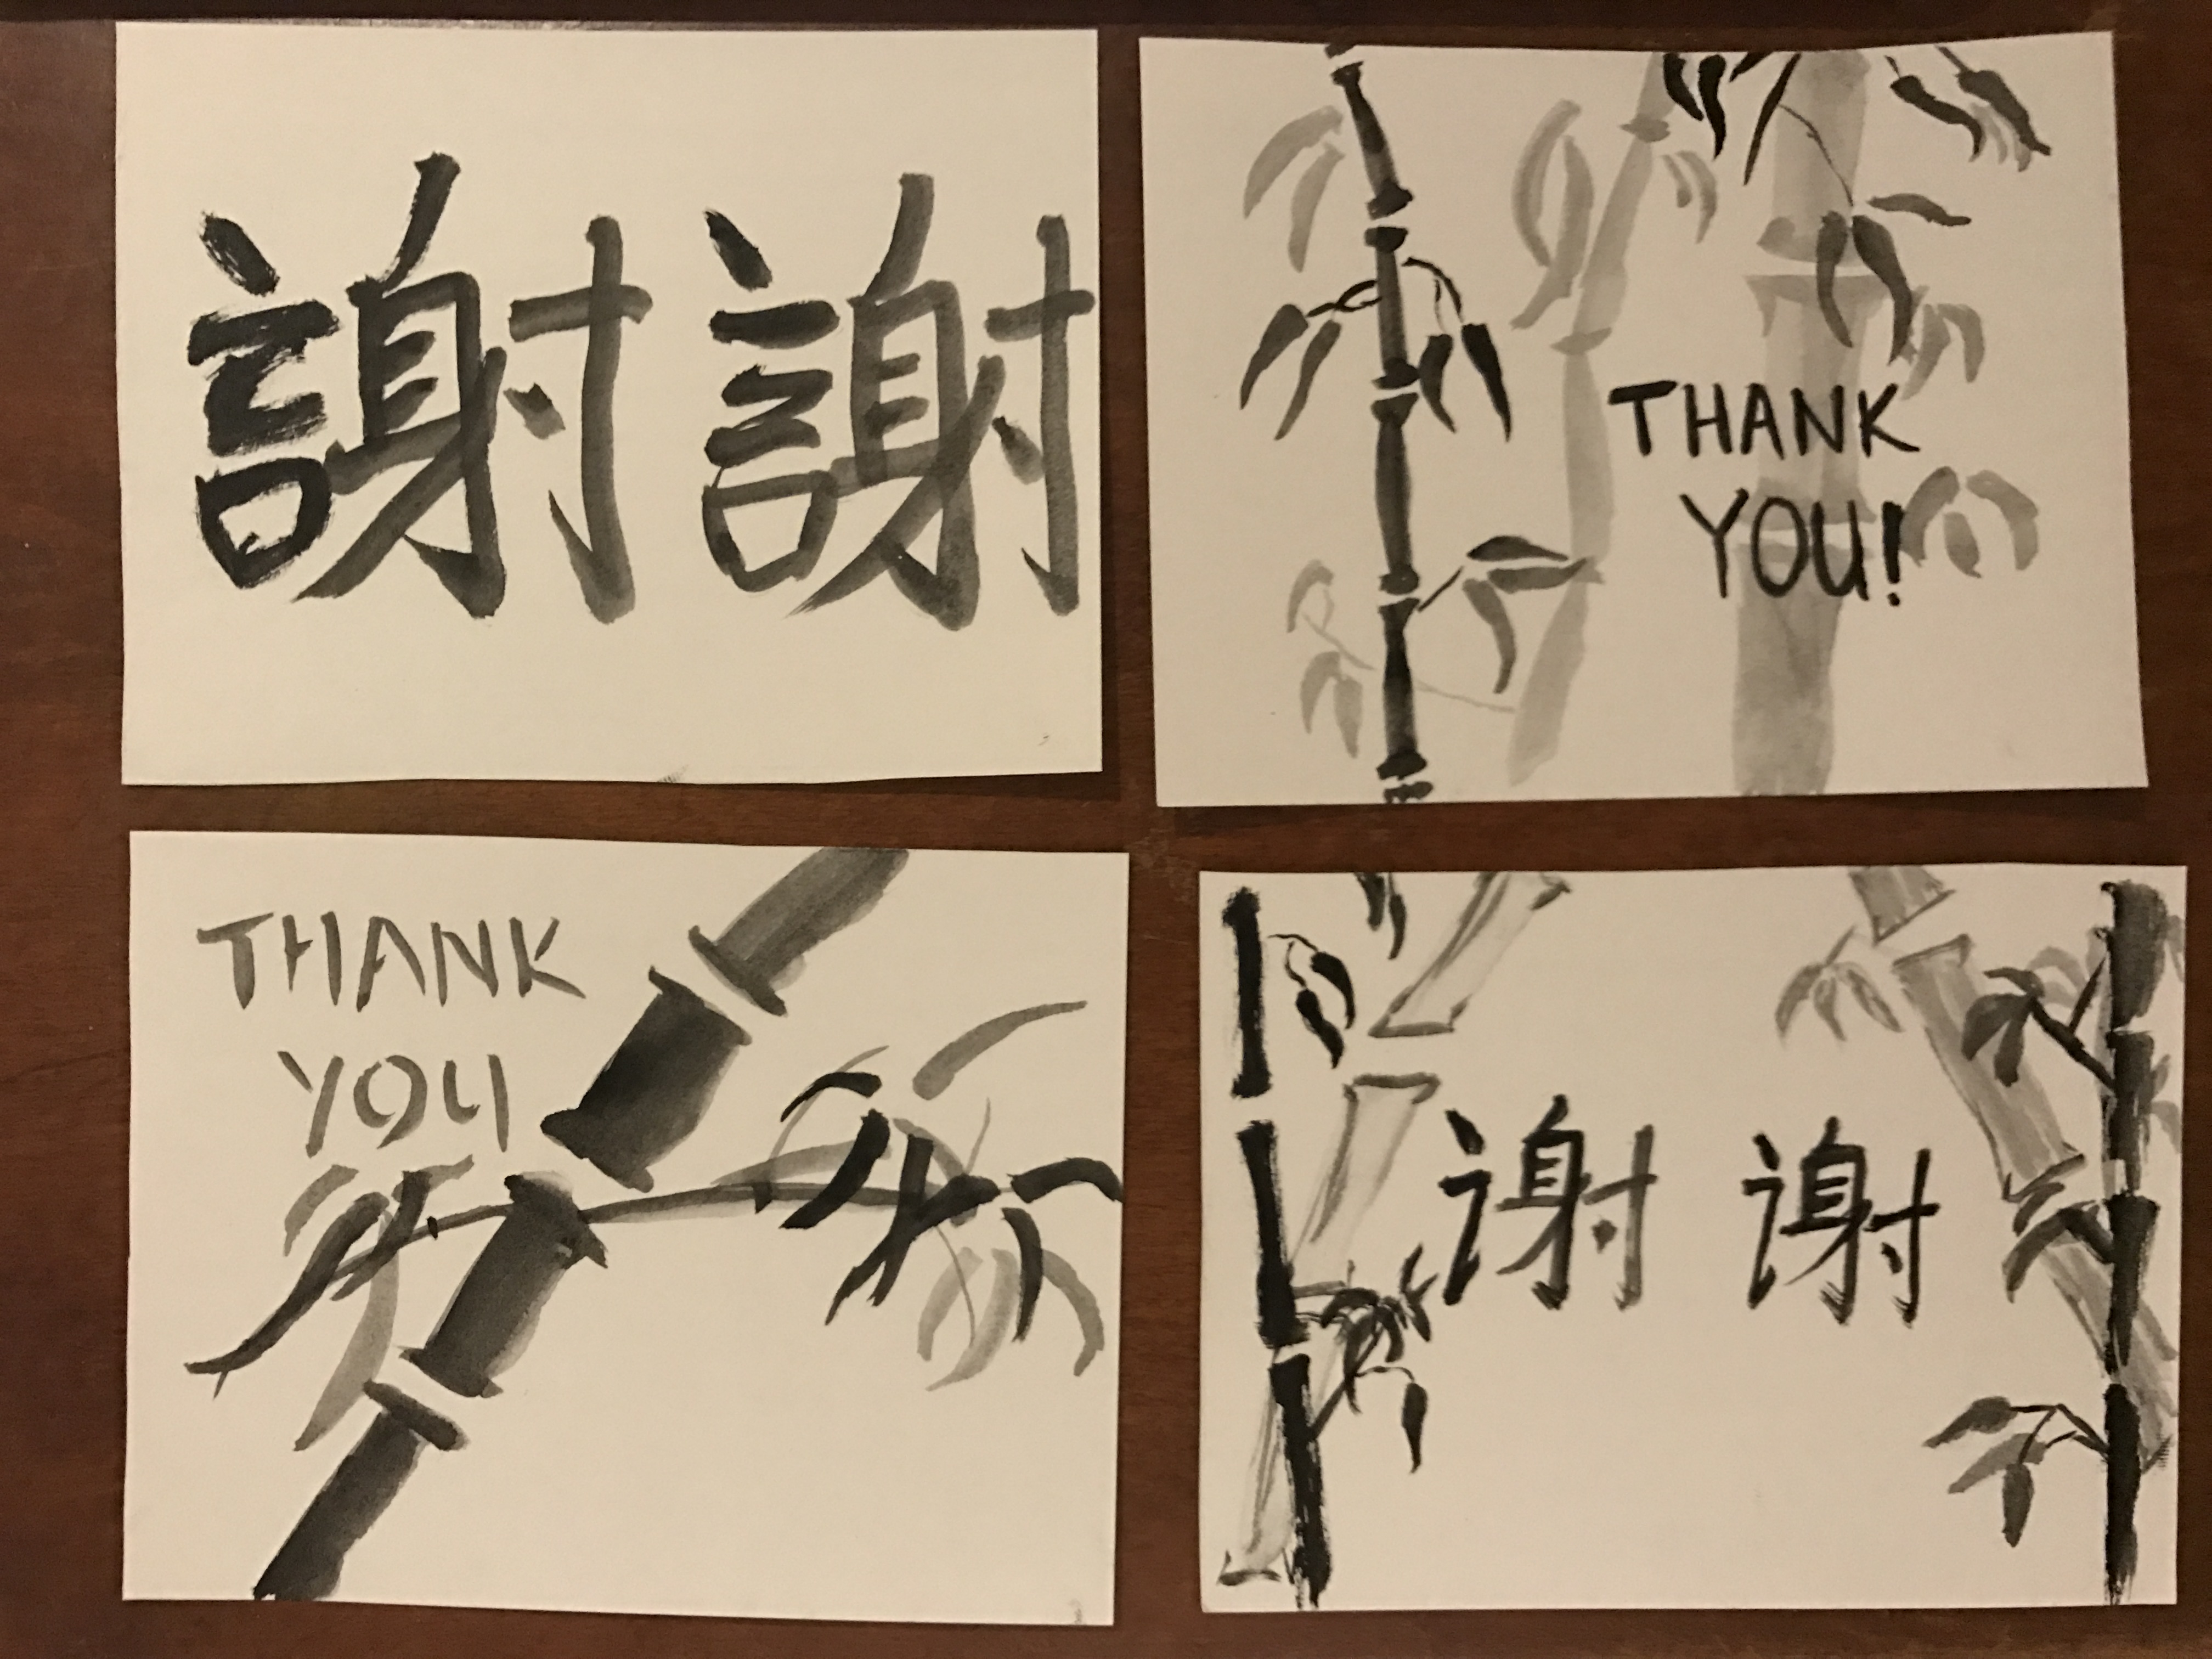 謝謝
THANK
YOU!
THANK
YOU
谢谢